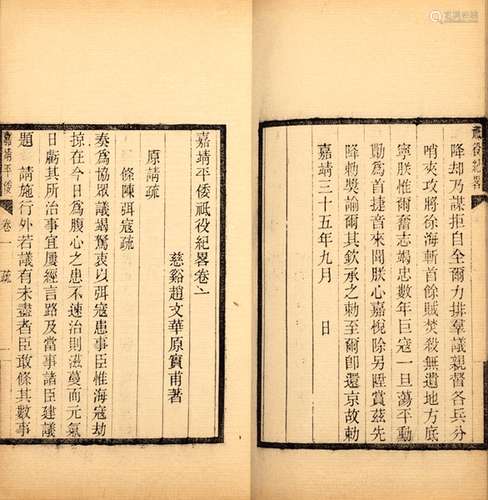 降却乃謀拒自全爾力排羣議親督各兵分
哨夾攻將徐海斬首餘賊焚殺無遺地方底
寧朕惟爾奮志竭忠數年巨寇一旦蕩平動
勵為首捷音來聞朕心嘉悅除另陞賞茲先
降勅獎諭爾其欽承之勅至爾卽還京故勅
嘉靖三十五年九月　日
嘉靖平倭祇役紀畧卷一
慈谿趙文華原實甫著
原請疏
條陳弭寇疏
奏為協眾議竭驚衷以弭寇患事臣惟海寇劫
掠在今日為腹心之患不速治則滋蔓而元氣
日虧其所治事宜屢經言路及當事諸臣建議
題　請施行外若議有未盡者臣敢條其數事
嘉靖平倭　卷一　疏
祇役紀畧